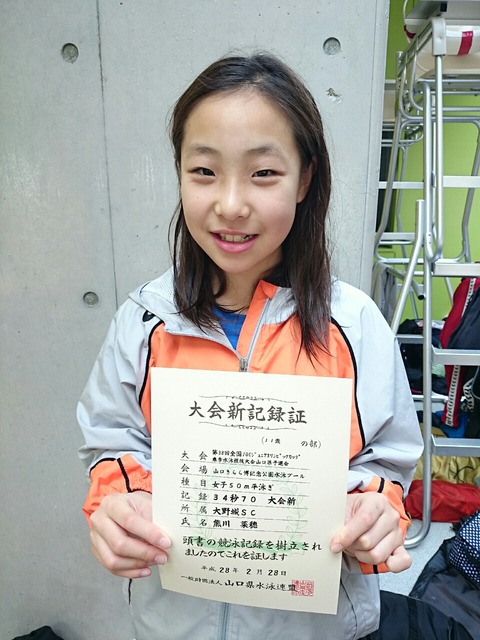 大会新記録証
(11歳 の部)
大会 第38回全国JOCジュニアオリンピックカップ
春季水泳競技大会山口県予選会
会場 山口きらら博記念公園水泳プール
種目 女子50m平泳ぎ
記録 34秒70 大会新
所属 大野城SC
氏名 熊川 菜穂
頭書の競泳記録を樹立され
ましたのでこれを証します
平成 28年 2月 28日
一般財団法人 山口県水泳連盟